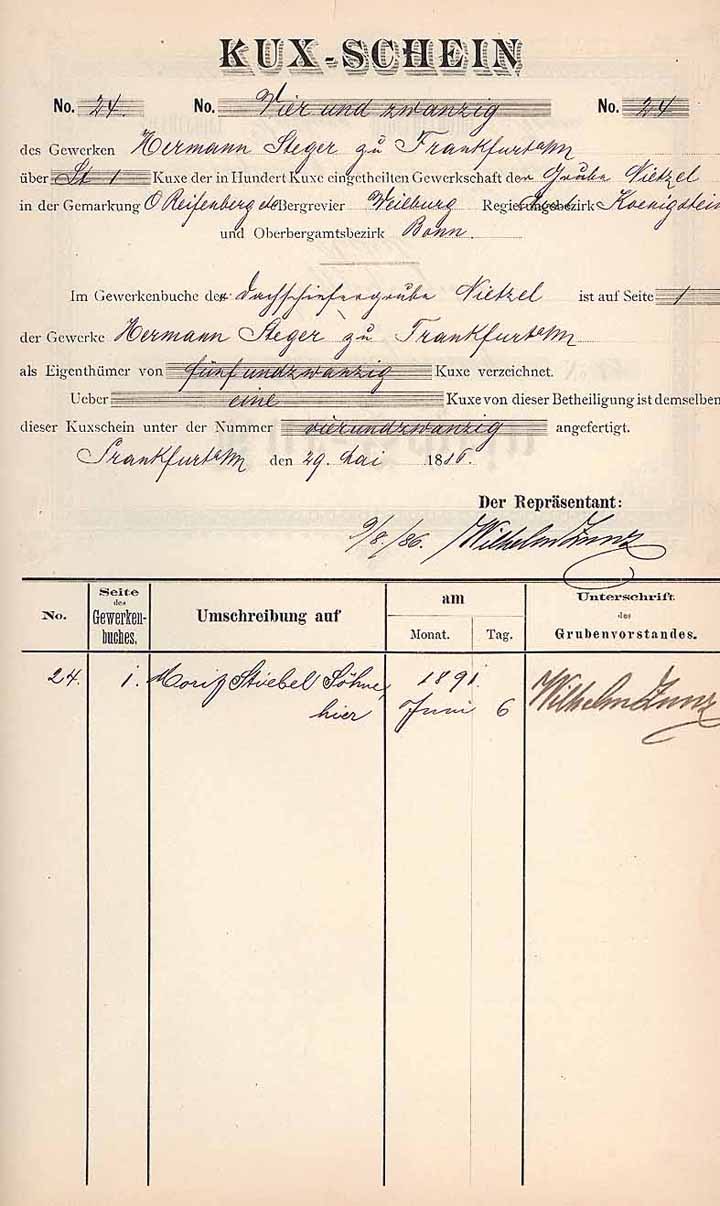 KUX-SCHEIN
No. 24. No. Vier und zwanzig No. 24
des Gewerken Hermann Steger zu Frankfurt a/M
über St 1 Kuxe der in Hundert Kuxe eingetheilten Gewerkschaft der Grube Nietzel
in der Gemarkung O Reifenberg etc Bergrevier Weilburg Regierungsbezirk Koenigstein
und Oberbergamtsbezirk Bonn.
Im Gewerkenbuche der Dachschiefergrube Nietzel ist auf Seite 1
der Gewerke Hermann Steger zu Frankfurt a/M
als Eigenthümer von fünfundzwanzig Kuxe verzeichnet.
Ueber eine Kuxe von dieser Betheiligung ist demselben
dieser Kuxschein unter der Nummer vierundzwanzig angefertigt.
Frankfurt a/M den 29. Mai 1886.
Der Repräsentant:
9/8./86. Wilhelm Zunz
No. Seite des Gewerken-buches. Umschreibung auf am Monat. Tag. Unterschrift des Grubenvorstandes.
24. 1. Moriz Stiebel Söhne, 1891. Wilhelm Zunz
hier Juni 6